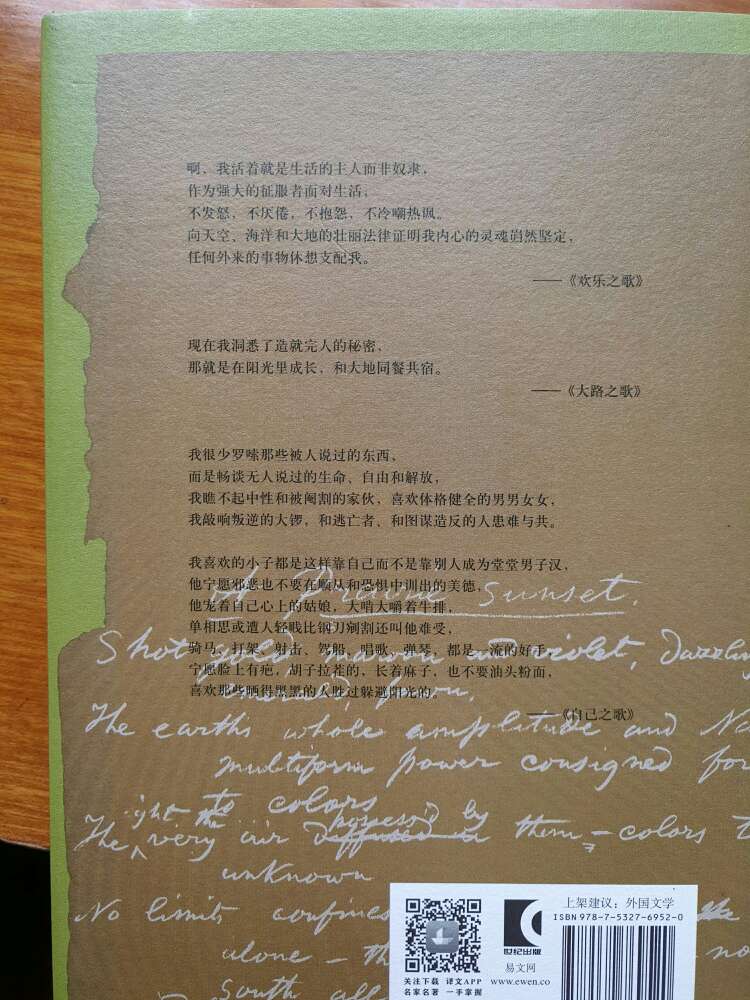 啊，我活着就是生活的主人而非奴隶，
作为强大的征服者面对生活，
不发怒，不厌倦，不抱怨，不冷嘲热讽。
向天空、海洋和大地的壮丽法律证明我内心的灵魂岿然坚定，
任何外来的事物休想支配我。
——《欢乐之歌》
现在我洞悉了造就完人的秘密，
那就是在阳光里成长，和大地同餐共宿。
——《大路之歌》
我很少罗嗦那些被人说过的东西，
而是畅谈无人说过的生命、自由和解放，
我瞧不起中性和被阉割的家伙，喜欢体格健全的男男女女，
我敲响叛逆的大锣，和逃亡者、和图谋造反的人患难与共。
我喜欢的小子都是这样靠自己而不是靠别人成为堂堂男子汉，
他宁愿邪恶也不要在顺从和恐惧中训出的美德，
A Prairie Sunset.
他宠着自己心上的姑娘，大啃大嚼着牛排，
单相思或遭人轻贱比钢刀剜割还叫他难受，
骑马、打架、射击、驾船、唱歌、弹琴，都是一流的好手，
Shot gold, maroon violet, dazzling
宁愿脸上有疤，胡子拉茬的，长着麻子，也不要油头粉面，
喜欢那些晒得黑黑的人胜过躲避阳光的。
fawn.
——《自己之歌》
The earths whole amplitude and Na
multiform power consigned for
to colors
The very air possess'd by
diffused in them - colors
unknown
No limit, confines
alone - th no
South all
上架建议：外国文学
ISBN 978-7-5327-6952-0
世纪出版
易文网
www.ewen.co
关注下载 译文APP
名家名著 一手掌握